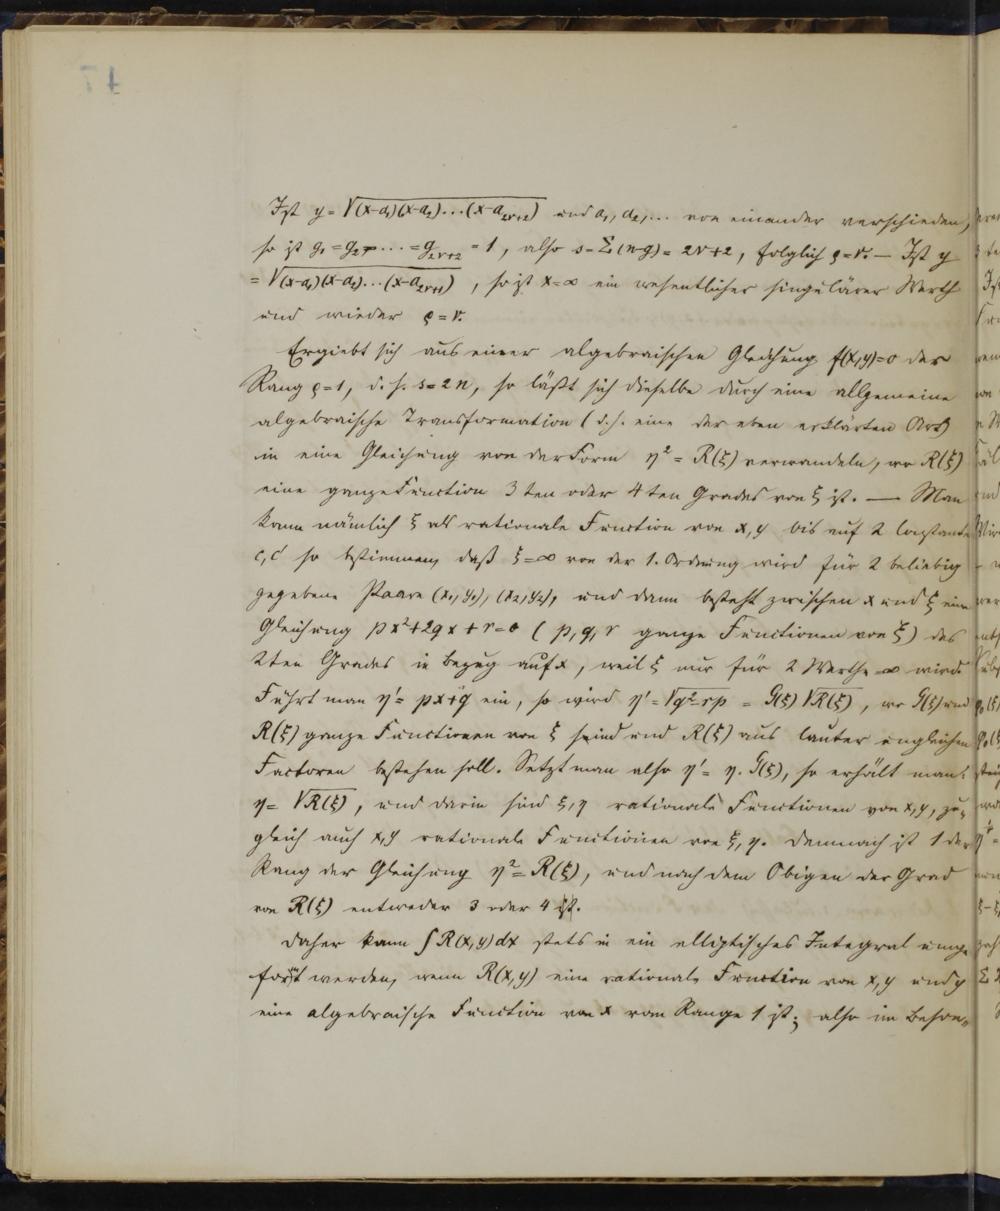 Ist y = √(x-a₁)(x-a₂)...(x-a₂ᵣ₊₂) und a₁, a₂, ... von einander verschieden,
so ist g₁ = g₂ = ... = g₂ᵣ₊₂ = 1, also s = Σ(n-g) = 2r+2, folglich ρ = r. — Ist y
= √(x-a₁)(x-a₂)...(x-a₂ᵣ₊₁), so ist x=∞ ein wesentlicher singulärer Werth
und wieder ρ = r.
Ergiebt sich aus einer algebraischen Gleichung f(x,y)=0 der
Rang ρ=1, d.h. s=2n, so läßt sich dieselbe durch eine allgemeine
algebraische Transformation (d.h. eine der eben erklärten Art)
in eine Gleichung von der Form η² = R(ξ) verwandeln, wo R(ξ)
eine ganze Function 3ten oder 4ten Grades von ξ ist. — Man
kann nämlich ξ als rationale Function von x,y bis auf 2 Constante
c,c' so bestimmen, daß ξ=∞ von der 1. Ordnung wird für 2 beliebig
gegebene Paare (x₁,y₁), (x₂,y₂), und dann besteht zwischen x und ξ eine
Gleichung px²+2qx+r=0 (p,q,r ganze Functionen von ξ) des
2ten Grades in Bezug auf x, weil ξ nur für 2 Werthe ∞ wird.
Führt man η' = px+q ein, so wird η' = √q²-rp = G(ξ) √R(ξ), wo G(ξ) und
R(ξ) ganze Functionen von ξ sind und R(ξ) aus lauter ungleichen
Factoren bestehen soll. Setzt man also η' = η. G(ξ), so erhält man:
η = √R(ξ), und darin sind ξ,η rationale Functionen von x,y, zu-
gleich auch x,y rationale Functionen von ξ,η. Demnach ist 1 der
Rang der Gleichung η² = R(ξ), und nach dem Obigen der Grad
von R(ξ) entweder 3 oder 4.
Daher kann ∫R(x,y)dx stets in ein elliptisches Integral umge-
formt werden, wenn R(x,y) eine rationale Function von x,y und y
eine algebraische Function von x vom Range 1 ist; also im beson-